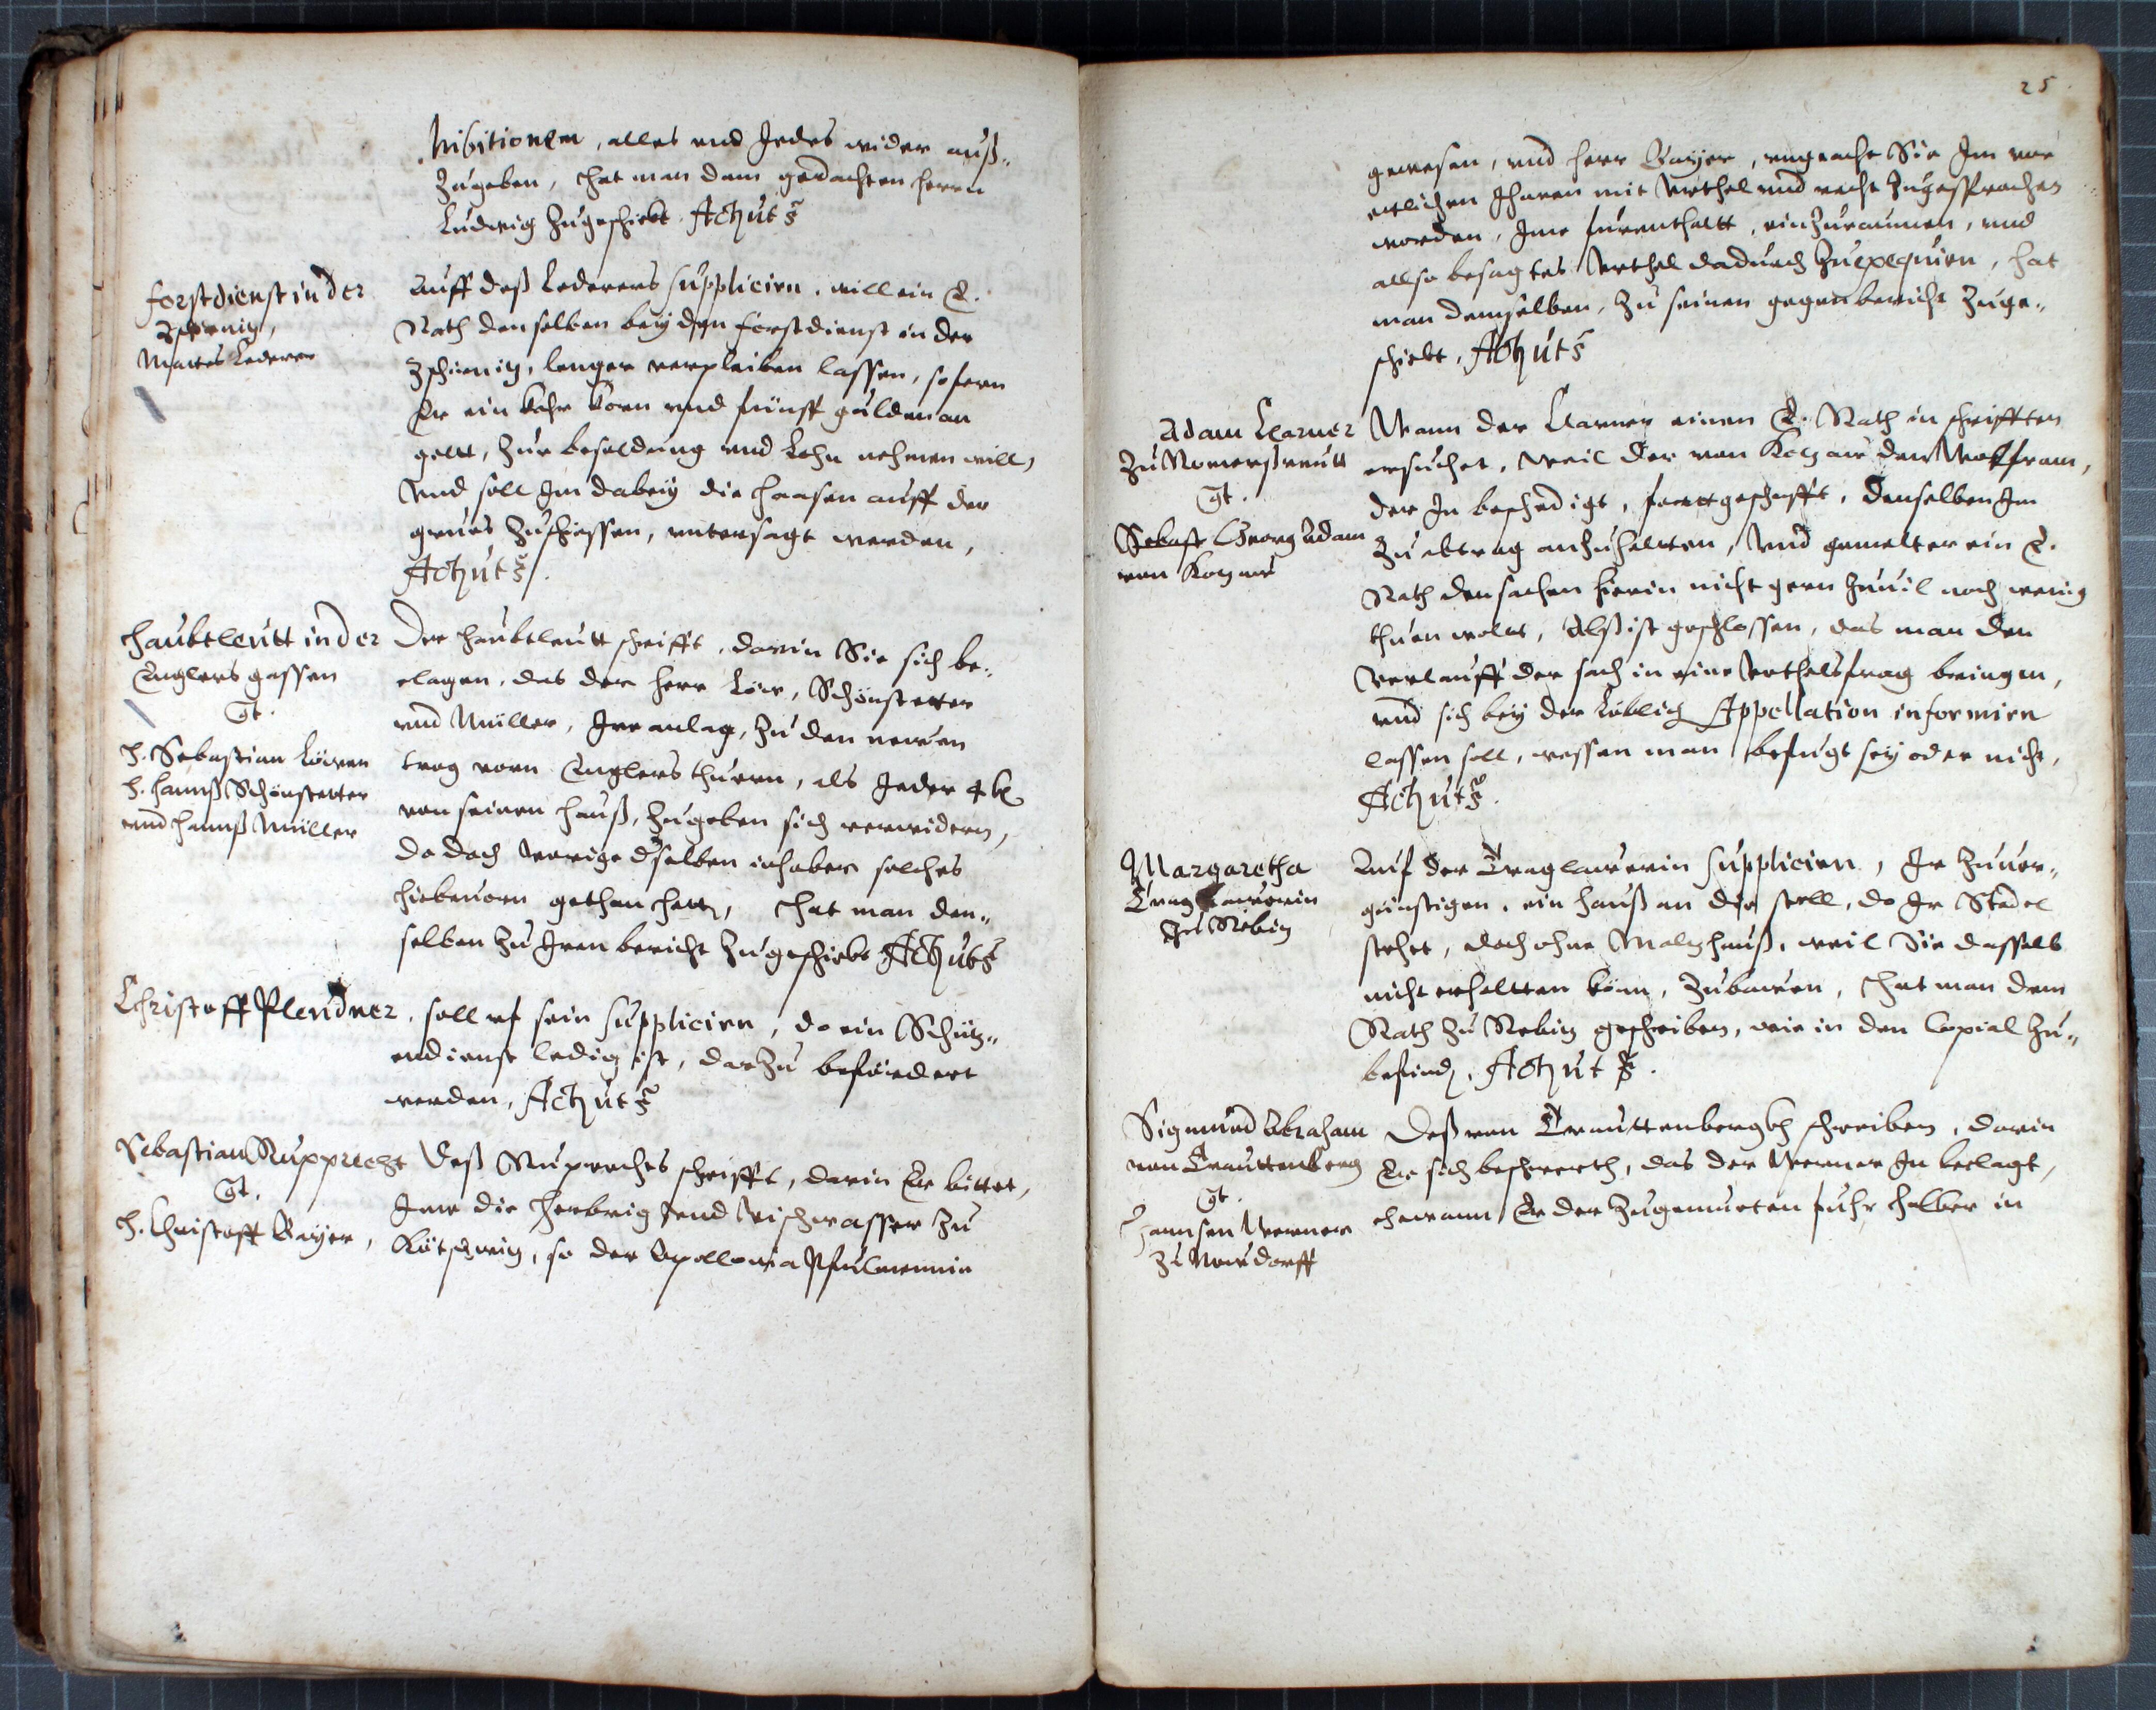 hibitionem, alles und Jedes wider auß„
zugeben, hat man dem gedachten herrn
Ludwig zugeschickt. Act. ut s.
forstdienst in der
Mattes Lederer
Auff deß Lederers suppliciren, will ein E.
Rath denselben bey dem forstdienst in der
lenger verpleiben lassen, sofern
Er ein Kahr Korn und fünff gulden an
gelt, zur besoldung und Lohn nehmen will,
Und soll Im dabey die haasen auff der
zuschiessen, untersagt werden,
Act. ut s.
haubtleutt in der
Englers gassen
gt.
h. Sebastian Löwen
h. hannß Schönstetter
und hannß Müller
Der haubtleutt schrifft, darin Sie sich be„
clagen, das der herr Löw, Schönstetter
und Müller, Ire anlag, zu den newen
trog vorn Englers thurn, als Jeder 4
von seinen hauß, zugeben sich verwidern,
do doch vorige desselben inhaber solches
hiebevorn gethan hetten, hat man den„
selben zu Iren bericht zugeschickt Act. ut s.
Christoff Plendner, soll uf sein suppliciren, do ein Schütz„
endienst ledig ist, darzu befördert
werden, Act. ut s.
Sebastian Rupprecht
gt.
h. Christoff Bayer,
Deß Ruprechts schrifft, darin Er bittet,
Ime die herbrig und Vischwasser zu
so der Apollonia
25
gewesen, und herr Bayer, ungeacht Sie Im vor
etlichen Jharen mit Urthel und recht zugesprochen
worden, Ime furenthaltt, einzuraumen, und
allso besagtes Urthel dadurch zuexequirn, hat
man demselben, zu seinen gegenbericht zuge„
schickt. Act. ut s.
Adam
zu
gt.
Sebast. Georg Adam
von Kotzau
Wann der einen E. Rath in schrifften
ersuchet, weil der von Kotzau den Wolfram,
der In beschedigt, fortgeschafft, denselben Im
zu abtrag anzuhaltten, Und gemelter ein E.
Rath den sachen hierin nicht gern zuvil noch wenig
thuen wolt, Alß ist geschlossen, das man den
Verlauff der sach in eine Urthelsfrag bringen,
und sich bey der Löblich Appellation informirn
lassen soll, wessen man befugt sey oder nicht,
Act. ut s.
Margaretha
zu Rebitz
Auf der suppliciren, Ir zuver„
günstigen, ein hauß an die stell, do Ir Stadel
stehet, doch ohne Maltzhauß, weil Sie dasselb
nicht erhaltten könn, zubawen, hat man dem
Rath zu Rebitz geschriben, wie in den Copial zu„
befinden. Act. ut s.
Sigmund Abraham
von Trauttenberg
gt.
hannsen Werner
zu
Deß von Trauttenbergs schreiben, darin
Er sich beschwerth, das der Werner In beclagt,
Er der zugemutten fuhr halber in